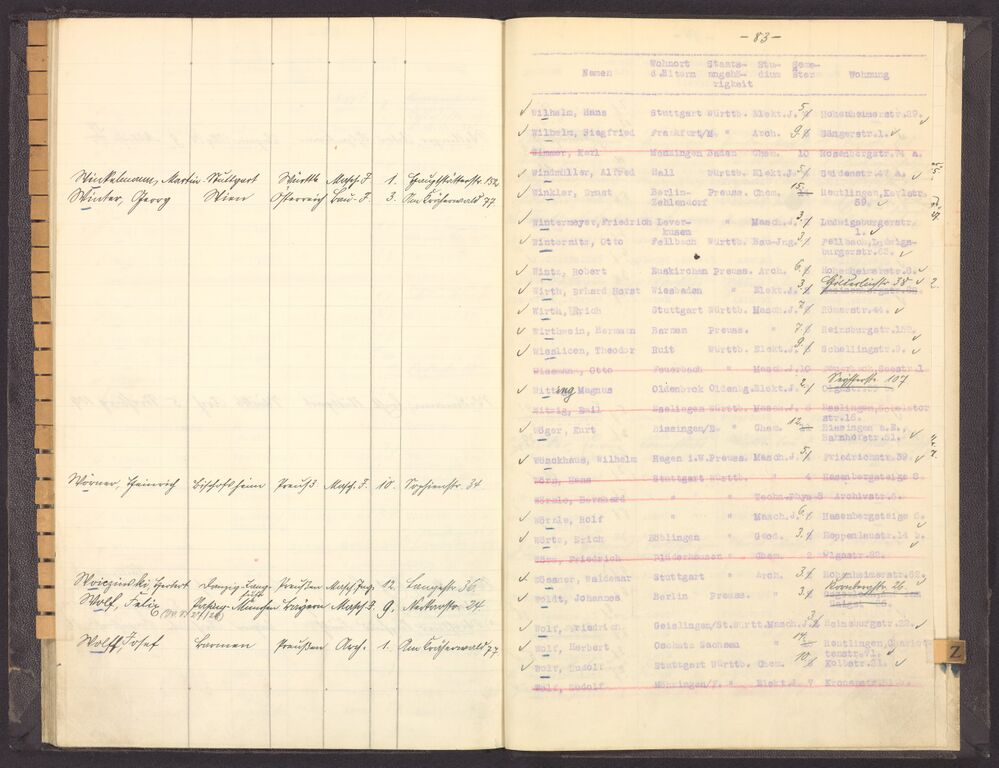 Winkelmann, Martin Stuttgart Württb Masch. J. 1. Hauptstätterstr. 152
Winter, Georg Wien Österreich Bau-J. 3. Am Kräherwald 77
Wörner, Heinrich Bischofsheim Preuß Masch. J. 10. Sophienstr. 34
Preußen Masch. Ing. 12. Langestr. 36.
Wolf, Felix München Bayern Masch. J. 9. Neckarstr. 24
Wolff, Josef Barmen Preußen Arch. 1. Am Kräherwald 77
- 83 -
Namen Wohnort d.Eltern Staats-angehö-rigkeit Stu-dium Seme-ster Wohnung
Wilhelm, Hans Stuttgart Württb. Elekt.J. 5 Hohenheimerstr.29.
Wilhelm, Siegfried Frankfurt/M. " Arch. 9. Sängerstr.1.
Wimmer, Karl Menzingen Baden Chem. 10 Rosenbergstr.74 a.
Windmüller, Alfred Hall Württb. Elekt.J. 5 Guidenstr.47 A.
Winkler, Ernst Berlin- Preuss. Chem. 15. Reutlingen, Karlstr.
Zehlendorf 59.
Wintermeyer, Friedrich Lever- " Masch.J. 3. Ludwigsburgerstr.
kusen 1.
Winternitz, Otto Fellbach Württb. Bau-Jng. 3. Fellbach, Ludwigs-
burgerstr.63.
Wintz, Robert Euskirchen Preuss. Arch. 6. Hohenheimerstr.8.
Wirth, Erhard Horst Wiesbaden " Elekt.J. 3. Hölderlinstr. 38 2.
Wirth, Erich Stuttgart Württb. Masch.J. 7. Römerstr.44.
Wirthwein, Hermann Barmen Preuss. " 7. Reinsburgstr.152.
Wisslicen, Theodor Ruit Württb. Elekt.J. 9. Schellingstr.9.
Wissmann, Otto Feuerbach " Masch.J. 10
Witting Magnus Oldenbrok Oldenbg. Elekt.J. 2. 107
Witzig, Emil Esslingen Württb. Masch.J. 8 Esslingen,
str.16.
Wöger, Kurt Bissingen/E. " Chem. 12. Bissingen a.E.,
Bahnhofstr.51.
Wönckhaus, Wilhelm Hagen i.W. Preuss. Masch.J. 5. Friedrichstr.39.
Wörn, Hans Stuttgart Württb. " 4 Hasenbergsteige 8.
Wörnle, Bernhard " " Techn.Phys. 8 Archivstr.
Wörnle, Rolf " " Masch.J. 6. Hasenbergsteige 6.
Wörtz, Erich Böblingen " Geod. 3. Hoppenlaustr.14 b.
Wörz, Friedrich Plüderhausen " Chem. 2 Olgastr.82.
Wössner, Waldemar Stuttgart " Arch. 3. Hohenheimerstr.62.
Woldt, Johannes Berlin Preuss. " 3. Kornbergstr. 26
Wolf, Friedrich Geislingen/St. Württ. Masch.J. 3. Reinsburgstr.22.
Wolf, Herbert Oschatz Sachsen " 14. Reutlingen, Charlot-
tenstr.71.
Wolf, Rudolf Stuttgart Württb. Chem. 10. Kolbstr.21.
Wolf, Rudolf Mönzingen/F. " Elekt.J. 7
Z